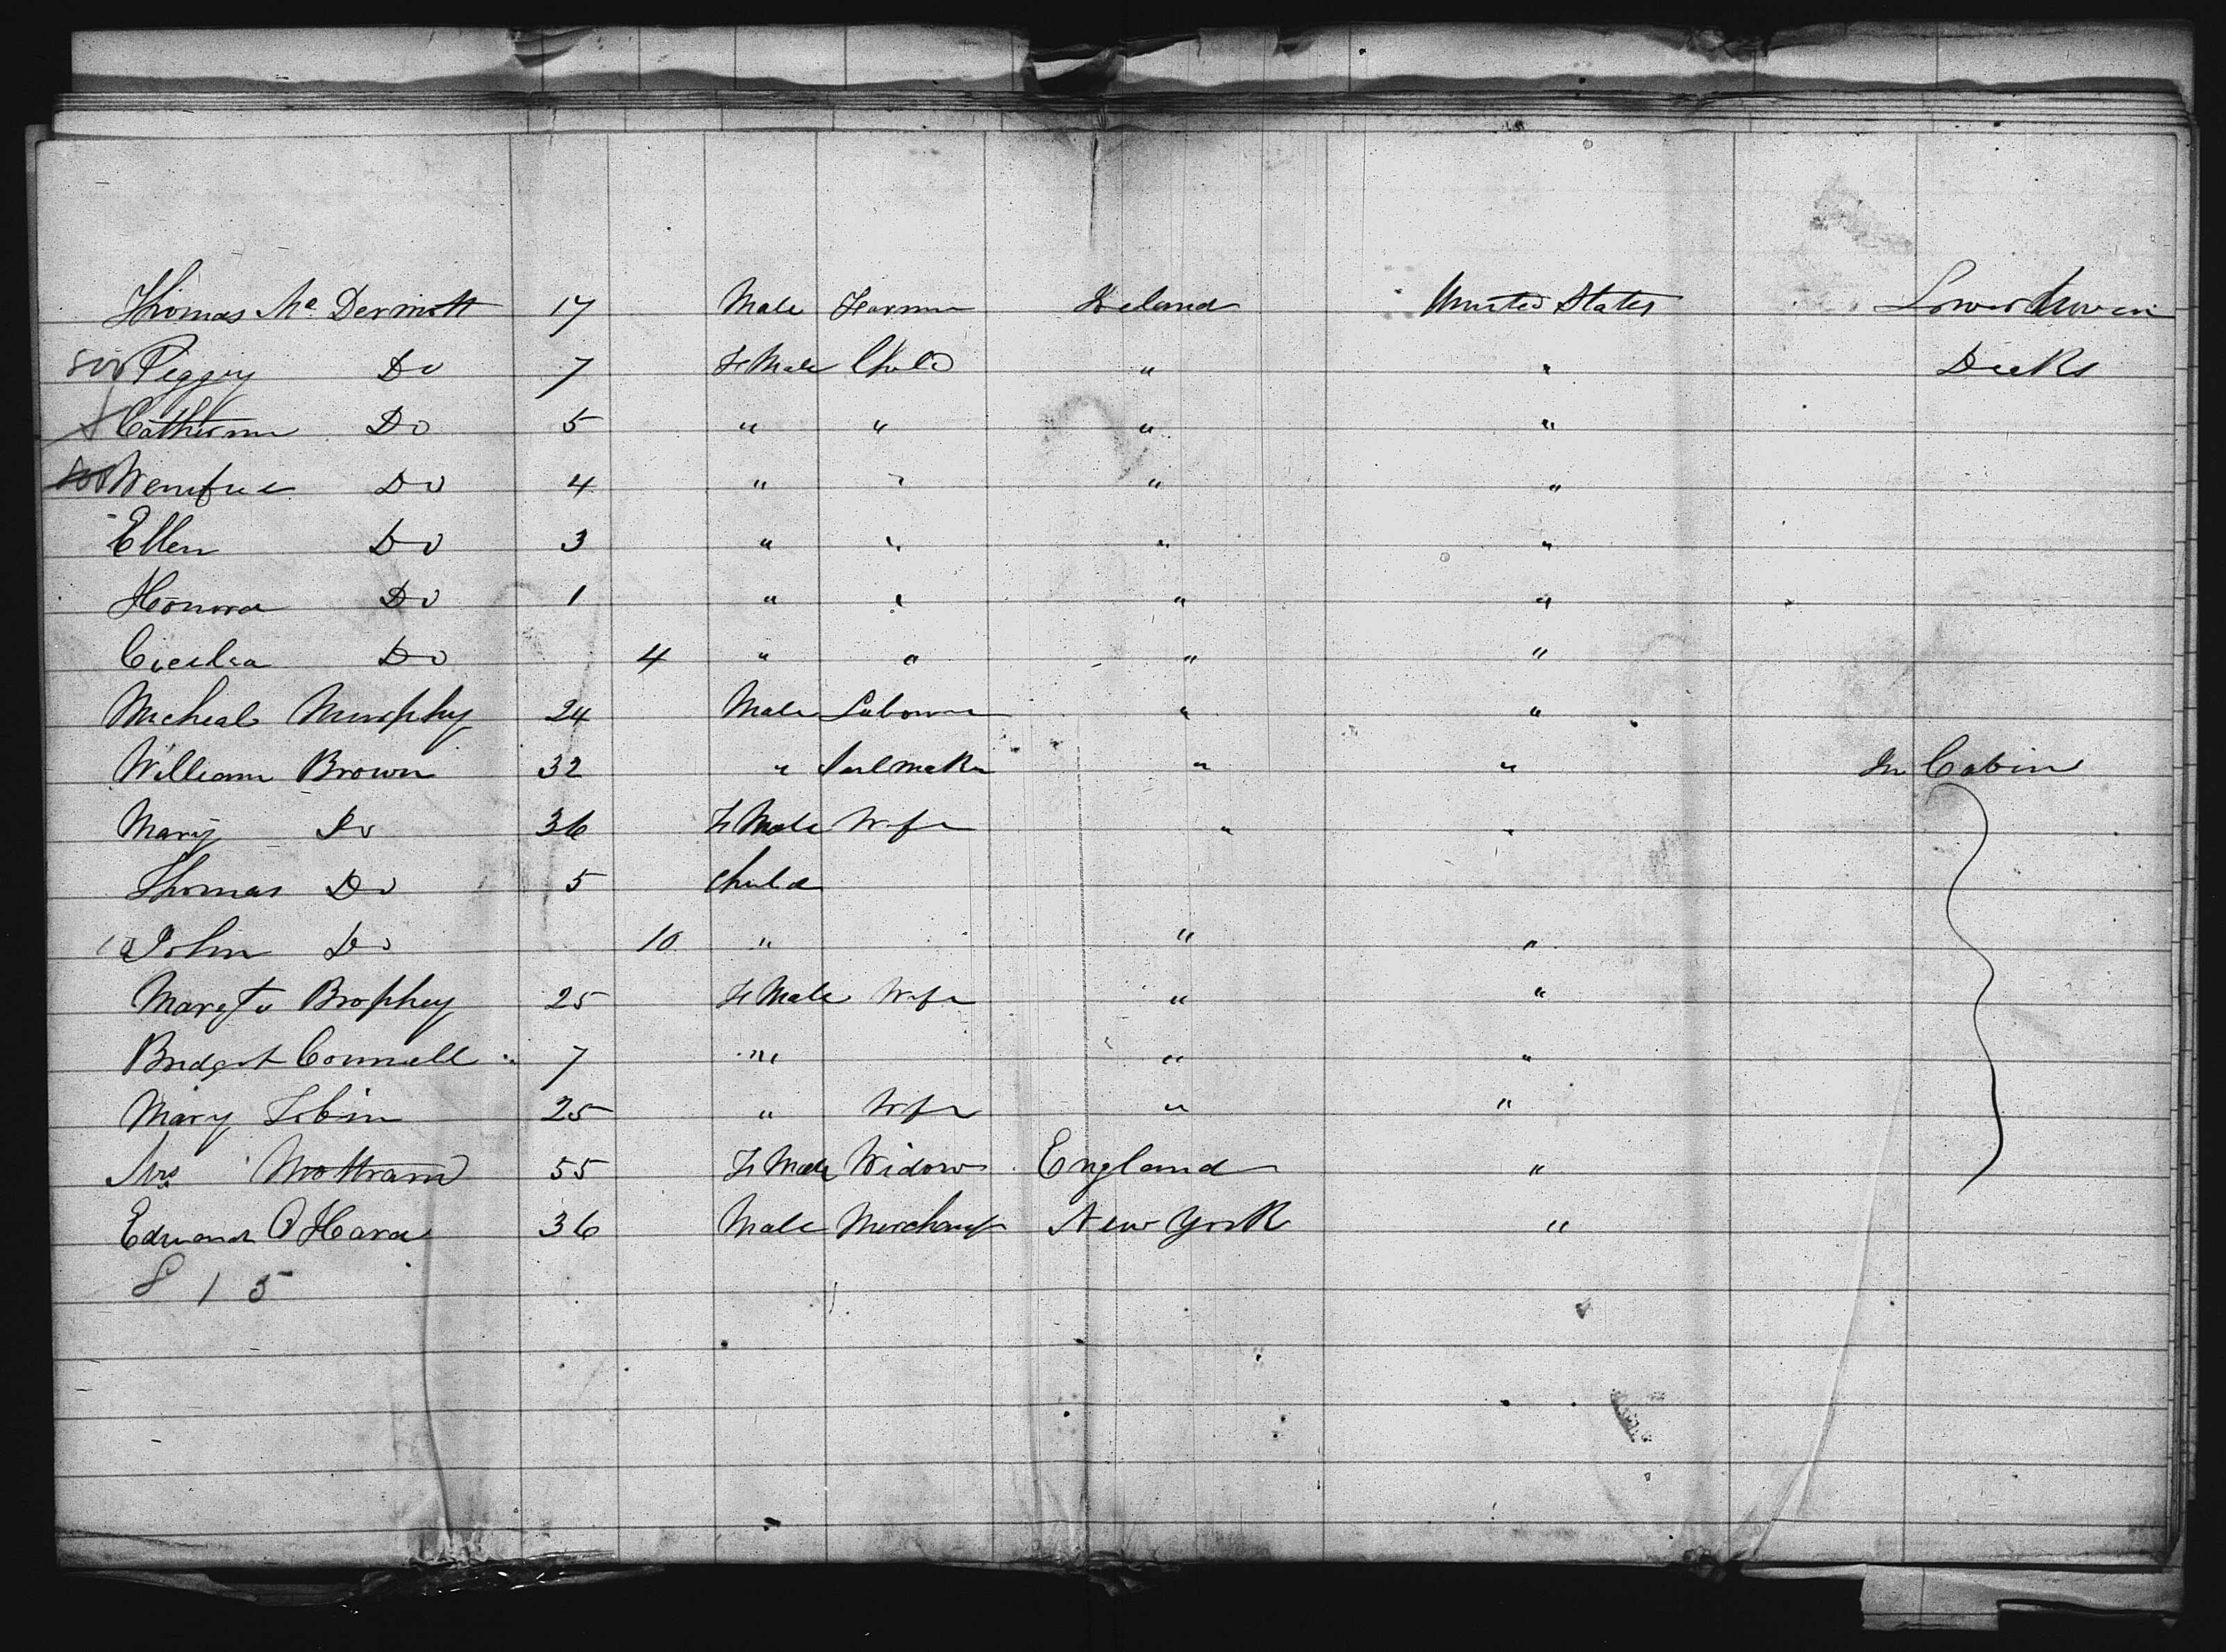 Thomas Mc Dermott 17 Male Farmer Ireland United States Lower
800 Peggy Do 7 FMale Child " " Decks
Catherine Do 5 " " " "
Wenifred Do 4 " " " "
Ellen Do 3 " " " "
Honora Do 1 " " " "
Cicelia Do 4 " " " "
Micheal Murphy 24 Male Labourer " "
William Brown 32 " Sailmaker " " In Cabin
Mary Do 36 FMale Wife " "
Thomas Do 5 Child
10 John Do 10 " " "
Margt Brophey 25 FMale Wife " "
Bridget Connell 7 " " "
Mary Tobin 25 " Wife " "
Mrs Mottram 55 FMale Widow England "
Edmond O Hara 36 Male Merchant New York "
815